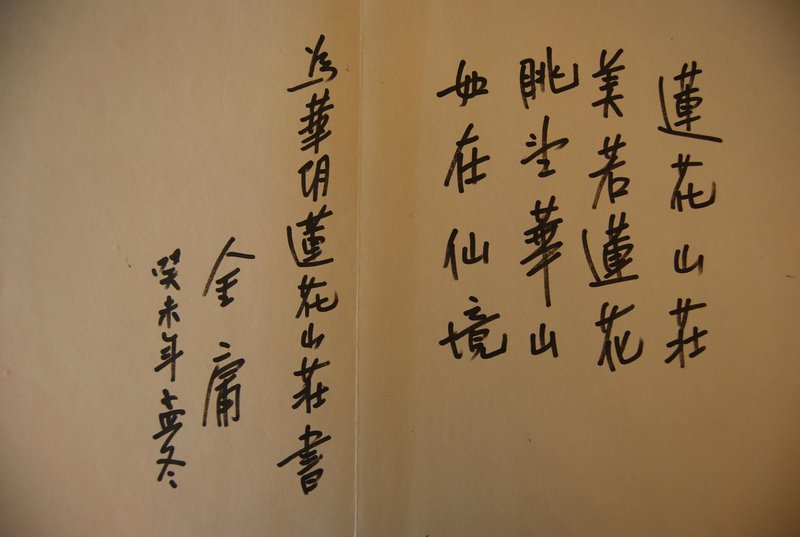 蓮花山莊
美若蓮花
眺望華山
如在仙境
為華阴蓮花山莊書
金庸
癸未年孟冬